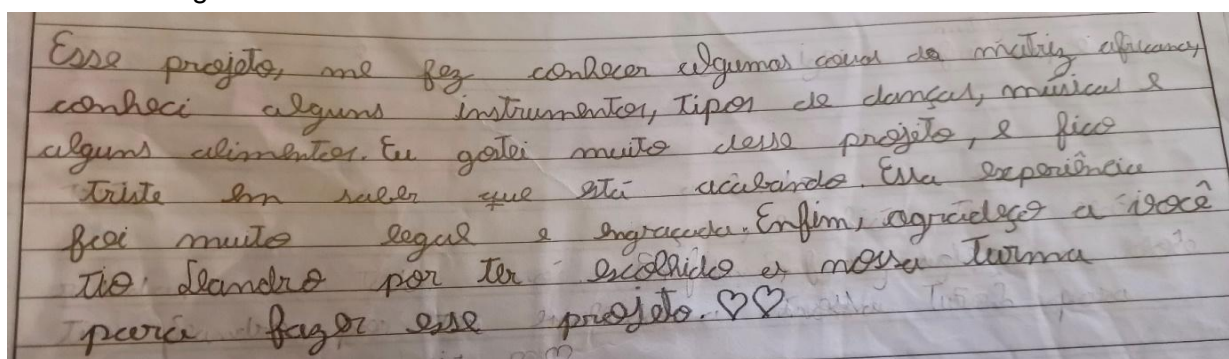 Esse projeto, me fez conhecer algumas coisas da matriz africana,
conheci alguns instrumentos, tipos de danças, músicas e
alguns alimentos. Eu gostei muito desse projeto, e fico
triste em saber que está acabando. Essa experiência
foi muito legal e engraçada. Enfim, agradeço a você
tio Leandro por ter escolhido a nossa turma
para fazer esse projeto. ♡♡